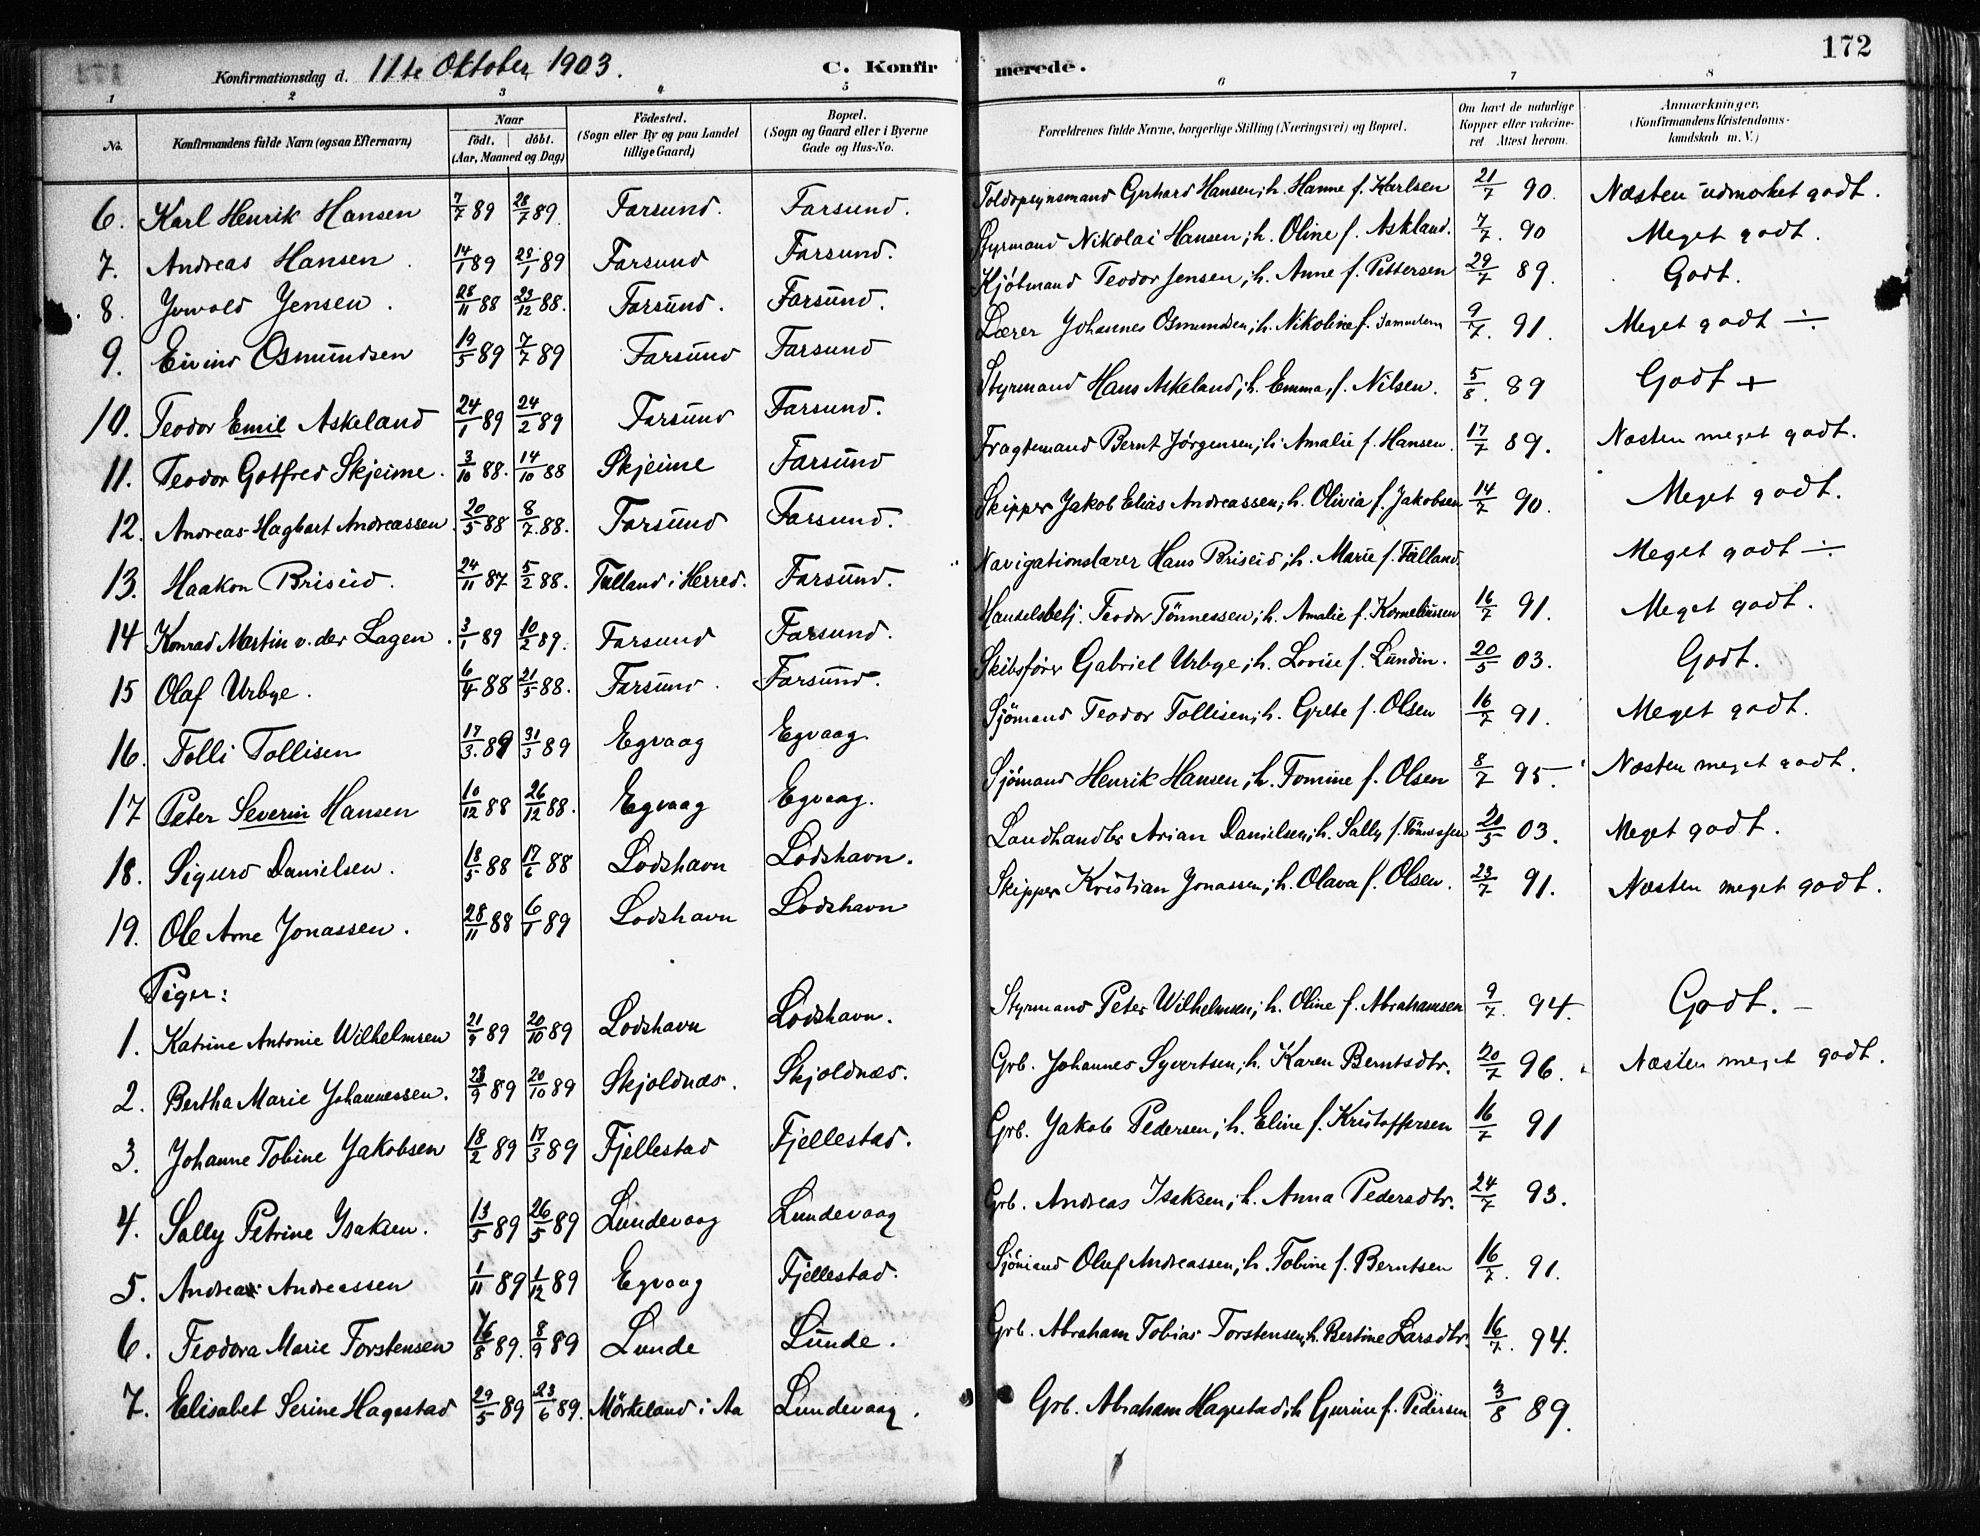 Konfirmationsdag d. 11te Oktober 1903.
C. Konfirmerede.
172
1 2 3 4 5 6 7 8
No. | Konfirmandens fulde Navn (ogsaa Efternavn) | Naar födt. döbt. (Aar, Maaned og Dag) | Födested. (Sogn eller By og paa Landet tillige Gaard) | Bopæl. (Sogn og Gaard eller i Byerne Gade og Hus-No. | Forældrenes fulde Navne, borgerlige Stilling (Næringsvei) og Bopæl. | Om havt de naturlige Kopper eller vakcineret. Attest herom. | Anmærkninger. (Konfirmandens Kristendomskundskab m. V.)
6. Karl Henrik Hansen 7/7 89 28/7 89. Farsund. Farsund. Toldopsynsmand Gerhard Hansen; h. Hanne f. Karlsen 21/7 90. Næsten udmerket godt.
7. Andreas Hansen 14/1 89 23/1 89 Farsund Farsund. Styrmand Nikolai Hansen; h. Oline f. Askland. 7/7. 90 Meget godt.
8. Yrvald Jensen. 28/11 88 23/12 88. Farsund. Farsund. Kjöbmand Teodor Jensen; h. Anne f. Pettersen 29/7 89. Godt.
9. Eivind Osmundsen 19/5 89 7/7 89 Farsund Farsund Lærer Johannes Osmundsen; h. Nikoline f. 9/7. 91. Meget godt ÷
10. Teodor Emil Askeland 24/1 89 24/2 89 Farsund Farsund. Styrmand Hans Askeland; h. Emma f. Nilsen. 5/8. 89 Godt +
11. Teodor Gotfred Skjeime. 3/10 88. 14/10 88 Skjeime Farsund Fragtemand Bernt Jörgensen; h. Amalie f. Hansen. 17/7 89. Næsten meget godt.
12. Andreas Hagbart Andreassen. 20/5 88 8/7. 88. Farsund Farsund. Skipper Jakob Elias Andreassen; h. Olivia f. Jakobsen 14/7 90. Meget godt.
13. Haakon Briseid. 24/11 87 5/2 88. Tulland i Herred. Farsund. Navigationslærer Hans Briseid; h. Marie f. Fülland. Meget godt ÷
14 Konrad Martin v. der Lagen. 3/1 89 10/2 89. Farsund Farsund. Handelsbetj. Teodor Tönnessen; h. Amalie f. Korneliusen 16/7 91. Meget godt.
15 Olaf Urbye. 6/4 88 21/5 88. Farsund. Farsund. Skibsförer Gabriel Urbye; h. Lovise f. Lundin. 20/5 03. Godt.
16. Tolli Tollisen 17/3. 89 31/3 89 Egvaag Egvaag Sjömand Teodor Tollisen; h. Grete f. Olsen 16/7 91. Meget godt.
17 Peter Severin Hansen 10/12 88 26/12 88. Egvaag Egvaag. Sjömand Henrik Hansen; h. Tomine f. Olsen 8/7 95. Næsten meget godt.
18. Sigurd Danielsen. 18/5 88 17/6 88 Lodshavn Lodshavn. Landhandler Arian Danielsen; h. Sally f. Tönnessen 20/5 03. Meget godt.
19. Ole Arne Jonassen. 28/11 88 6/1 89 Lodshavn Lodshavn Skipper Kristian Jonassen; h. Olava f. Olsen. 23/7 91. Næsten meget godt.
Piger:
1. Katrine Antonie Wilhelmsen 21/9 89 20/10 89 Lodshavn Lodshavn. Styrmand Peter Wilhelmsen; h. Oline f. Abrahamsen 9/7. 94. Godt. -
2. Bertha Marie Johannessen. 23/9 89 20/10 89 Skjoldnæs. Skjoldnæs. Grb. Johannes Syvertsen; h. Karen Berntsdtr. 20/7 96. Næsten meget godt.
3. Johanne Tobine Jakobsen 18/2 89 17/3 89 Fjellestad Fjellestad. Grb. Jakob Pedersen; h. Eline f. Kristoffersen 16/7 91
4. Sally Petrine Isaksen. 13/5 89 26/5 89 Lundevaag Lundevaag Grb. Andreas Isaksen; h. Anna Pedersdtr. 24/7 93.
5. Andrea Andreassen 1/11 89 1/12 89 Egvaag Fjellestad. Sjömand Oluf Andreassen; h. Tobine f. Berntsen 16/7. 91.
6. Teodora Marie Torstensen 16/8 89. 8/9 89 Lunde Lunde. Grb. Abraham Tobias Torstensen; h. Bertine Larsdtr. 16/7. 94.
7. Elisabet Serine Hagestad 29/5 89 23/6 89. Mörkeland i Aa Lundevaag. Grb. Abraham Hagestad; h Gurine f. Pedersen 3/8 89.